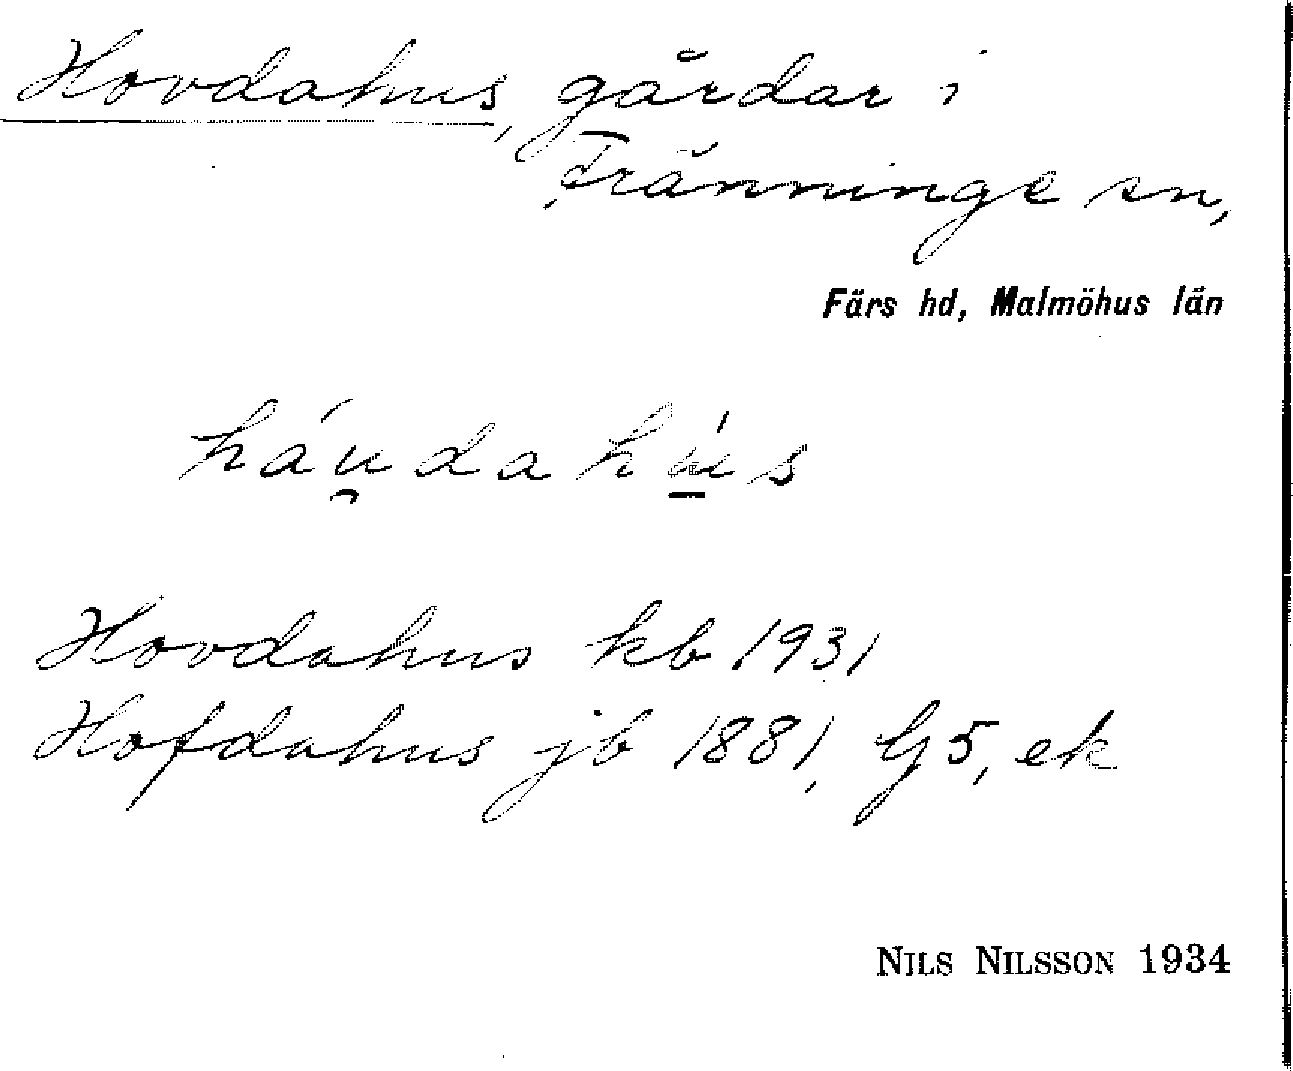 Hovdahus, gårdar i
Tränninge sn,
Färs hd, Malmöhus län
háu̯dahú̱s
Hovdahus kb 1931
Hofdahus jb 1881, G5, ek
NILS NILSSON 1934